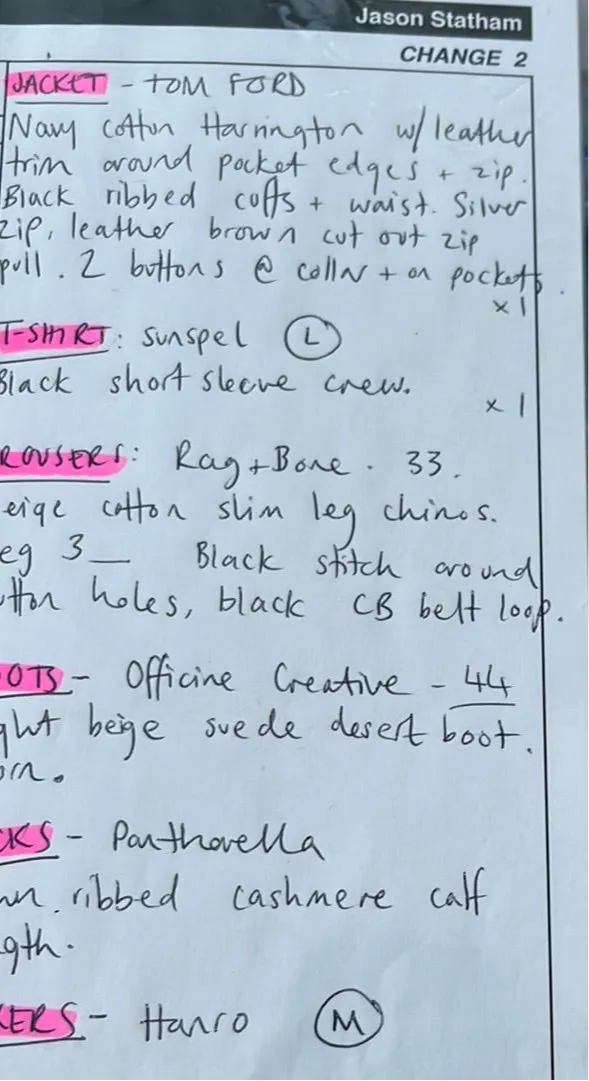 Jason Statham
CHANGE 2
JACKET - TOM FORD
Navy cotton Harrington w/ leather
trim around pocket edges + zip.
Black ribbed cuffs + waist. Silver
zip, leather brown cut out zip
pull. 2 buttons @ collar + on pockets.
x 1
T-SHIRT: Sunspel L
Black short sleeve crew.
x 1
ROUSERS: Rag + Bone. 33.
eige cotton slim leg chinos.
eg 3_ Black stitch around
tton holes, black CB belt loop.
OOTS - Officine Creative - 44
ght beige suede desert boot.
orn.
CKS - Pantherella
wn ribbed cashmere calf
ngth.
KERS - Hanro M